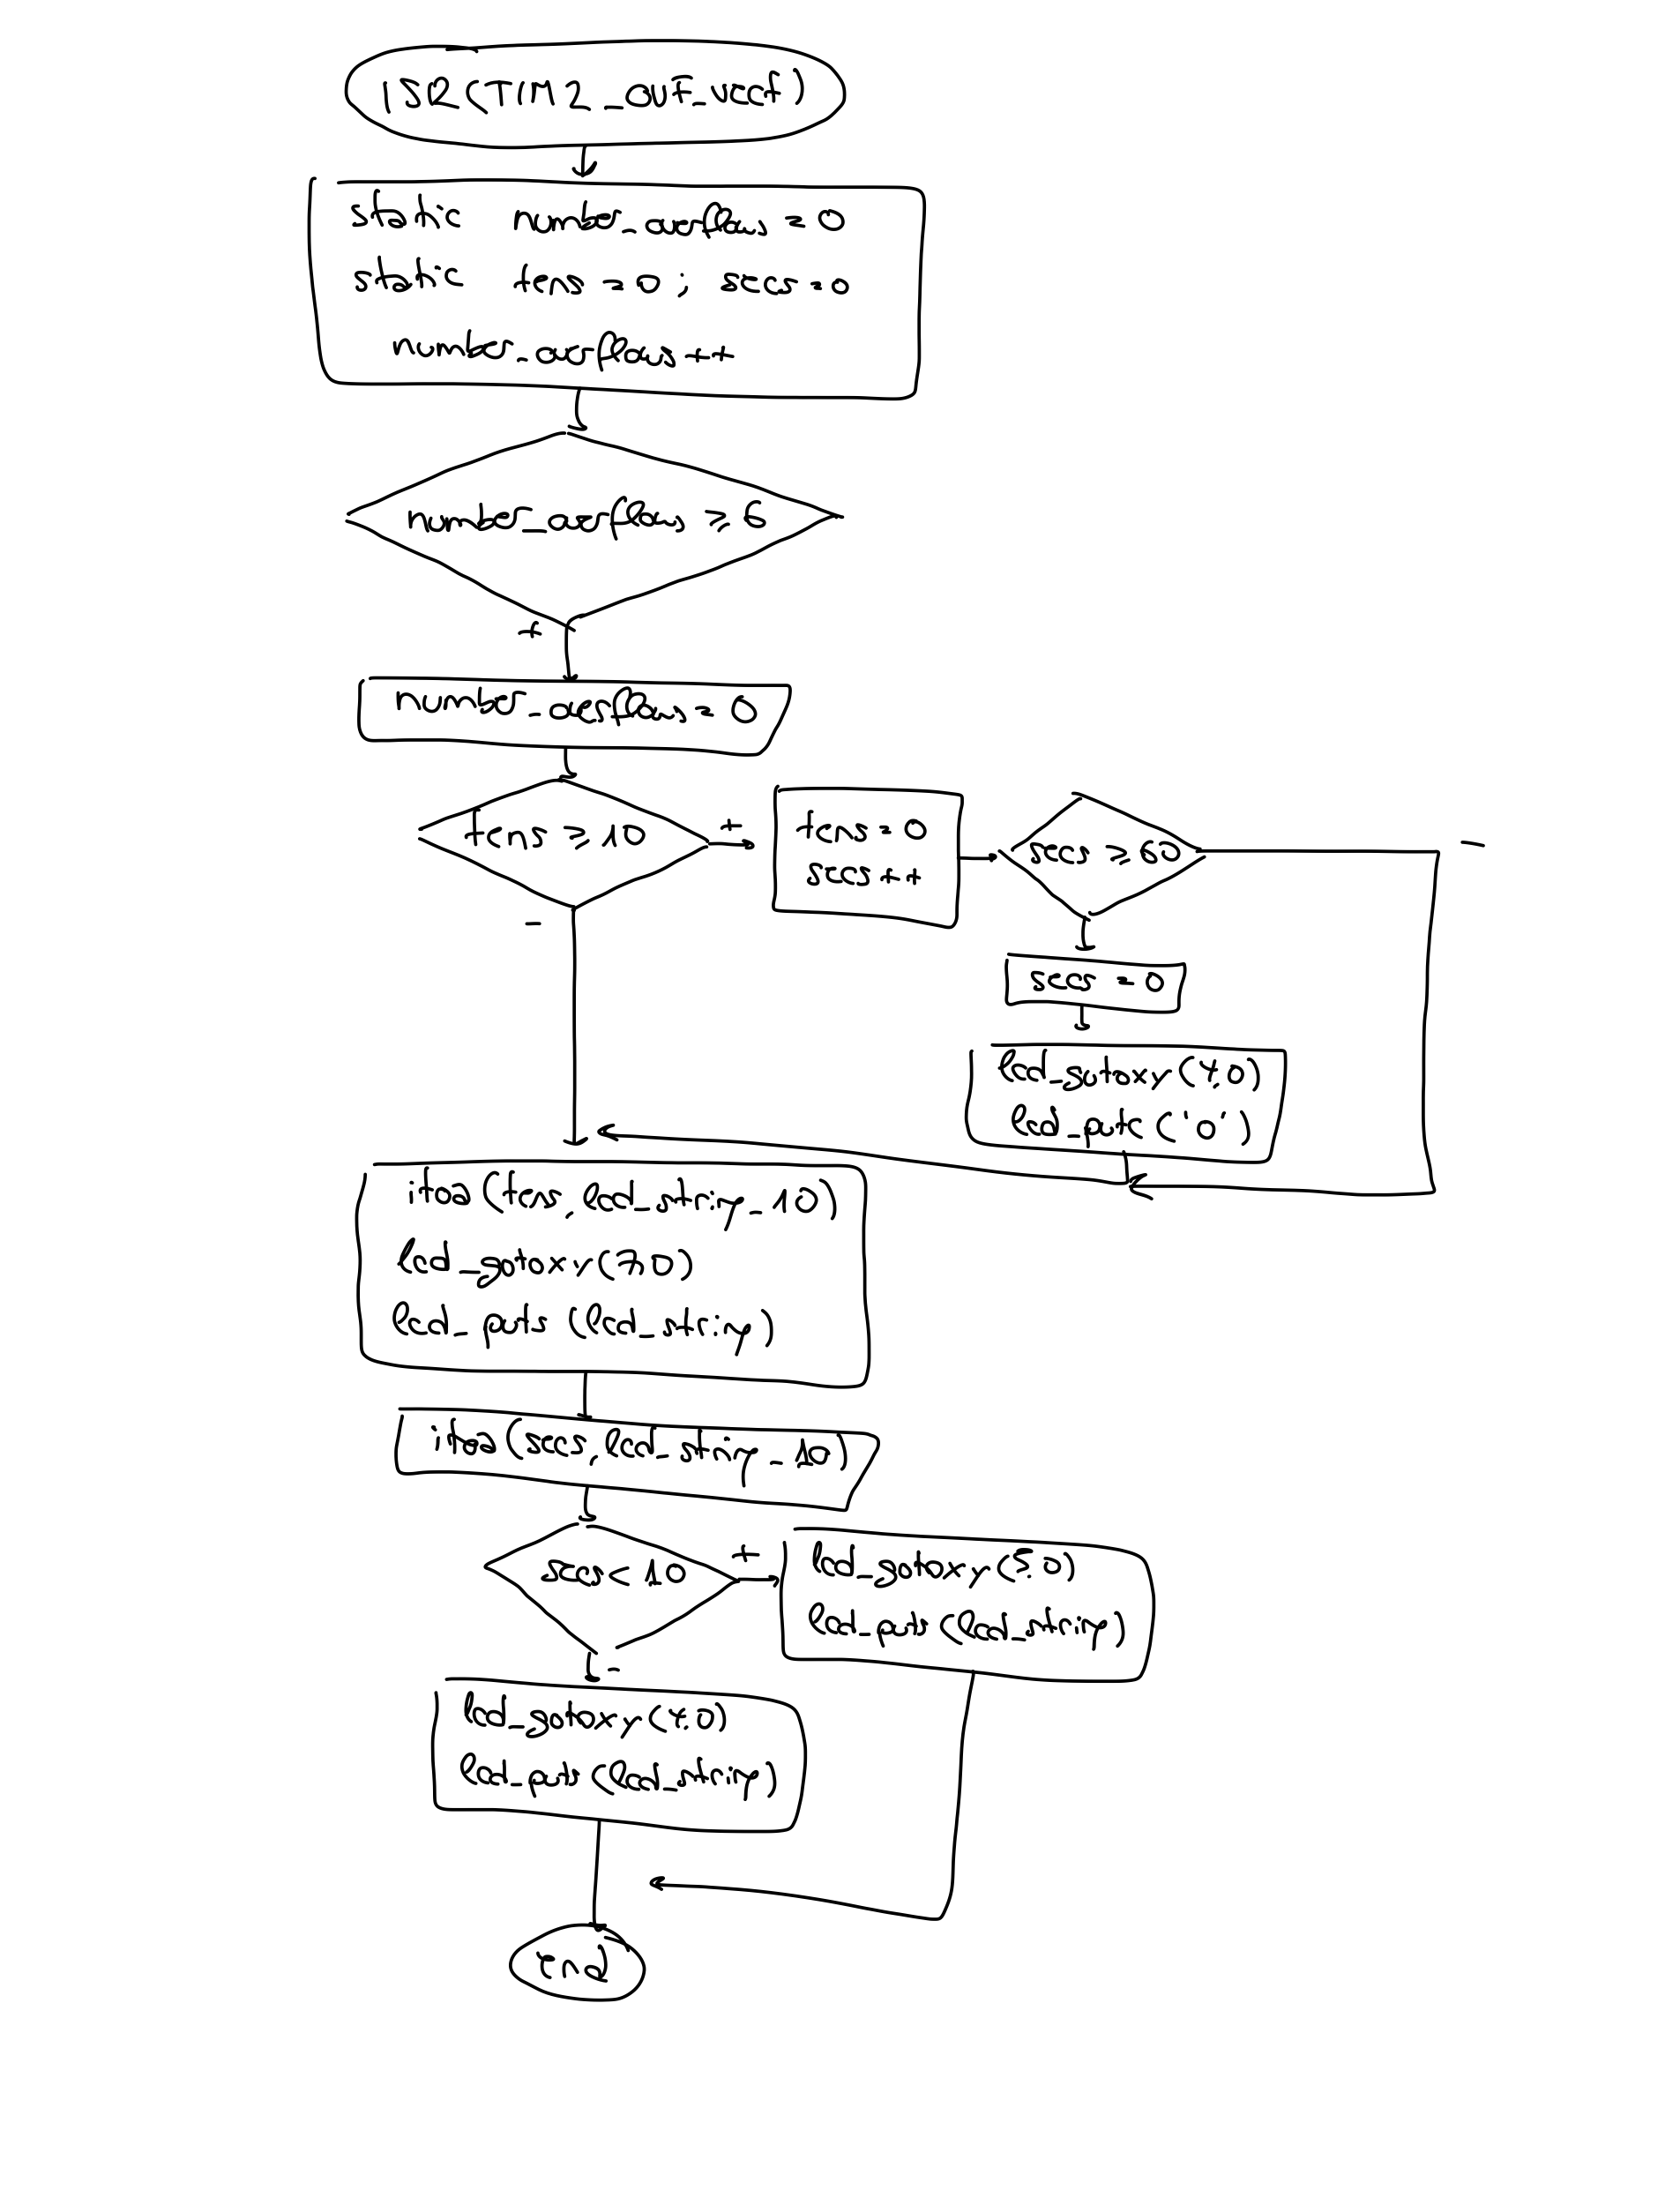 ISR(TIM2_OVF_vect)
static number_overflows = 0
static tens = 0 ; secs = 0
number_overflows++
number_overflows ≥ 6
+
number_overflows = 0
tens ≥ 10
+
-
tens = 0
secs++
secs ≥ 60
-
secs = 0
lcd_gotoxy(4,0)
lcd_putc('0')
itoa(tens, lcd_string_10)
lcd_gotoxy(7,0)
lcd_puts (lcd_string)
itoa(secs, lcd_string_10)
secs < 10
+
-
lcd_gotoxy(5,0)
lcd_puts(lcd_string)
lcd_gotoxy(4,0)
lcd_puts(lcd_string)
end